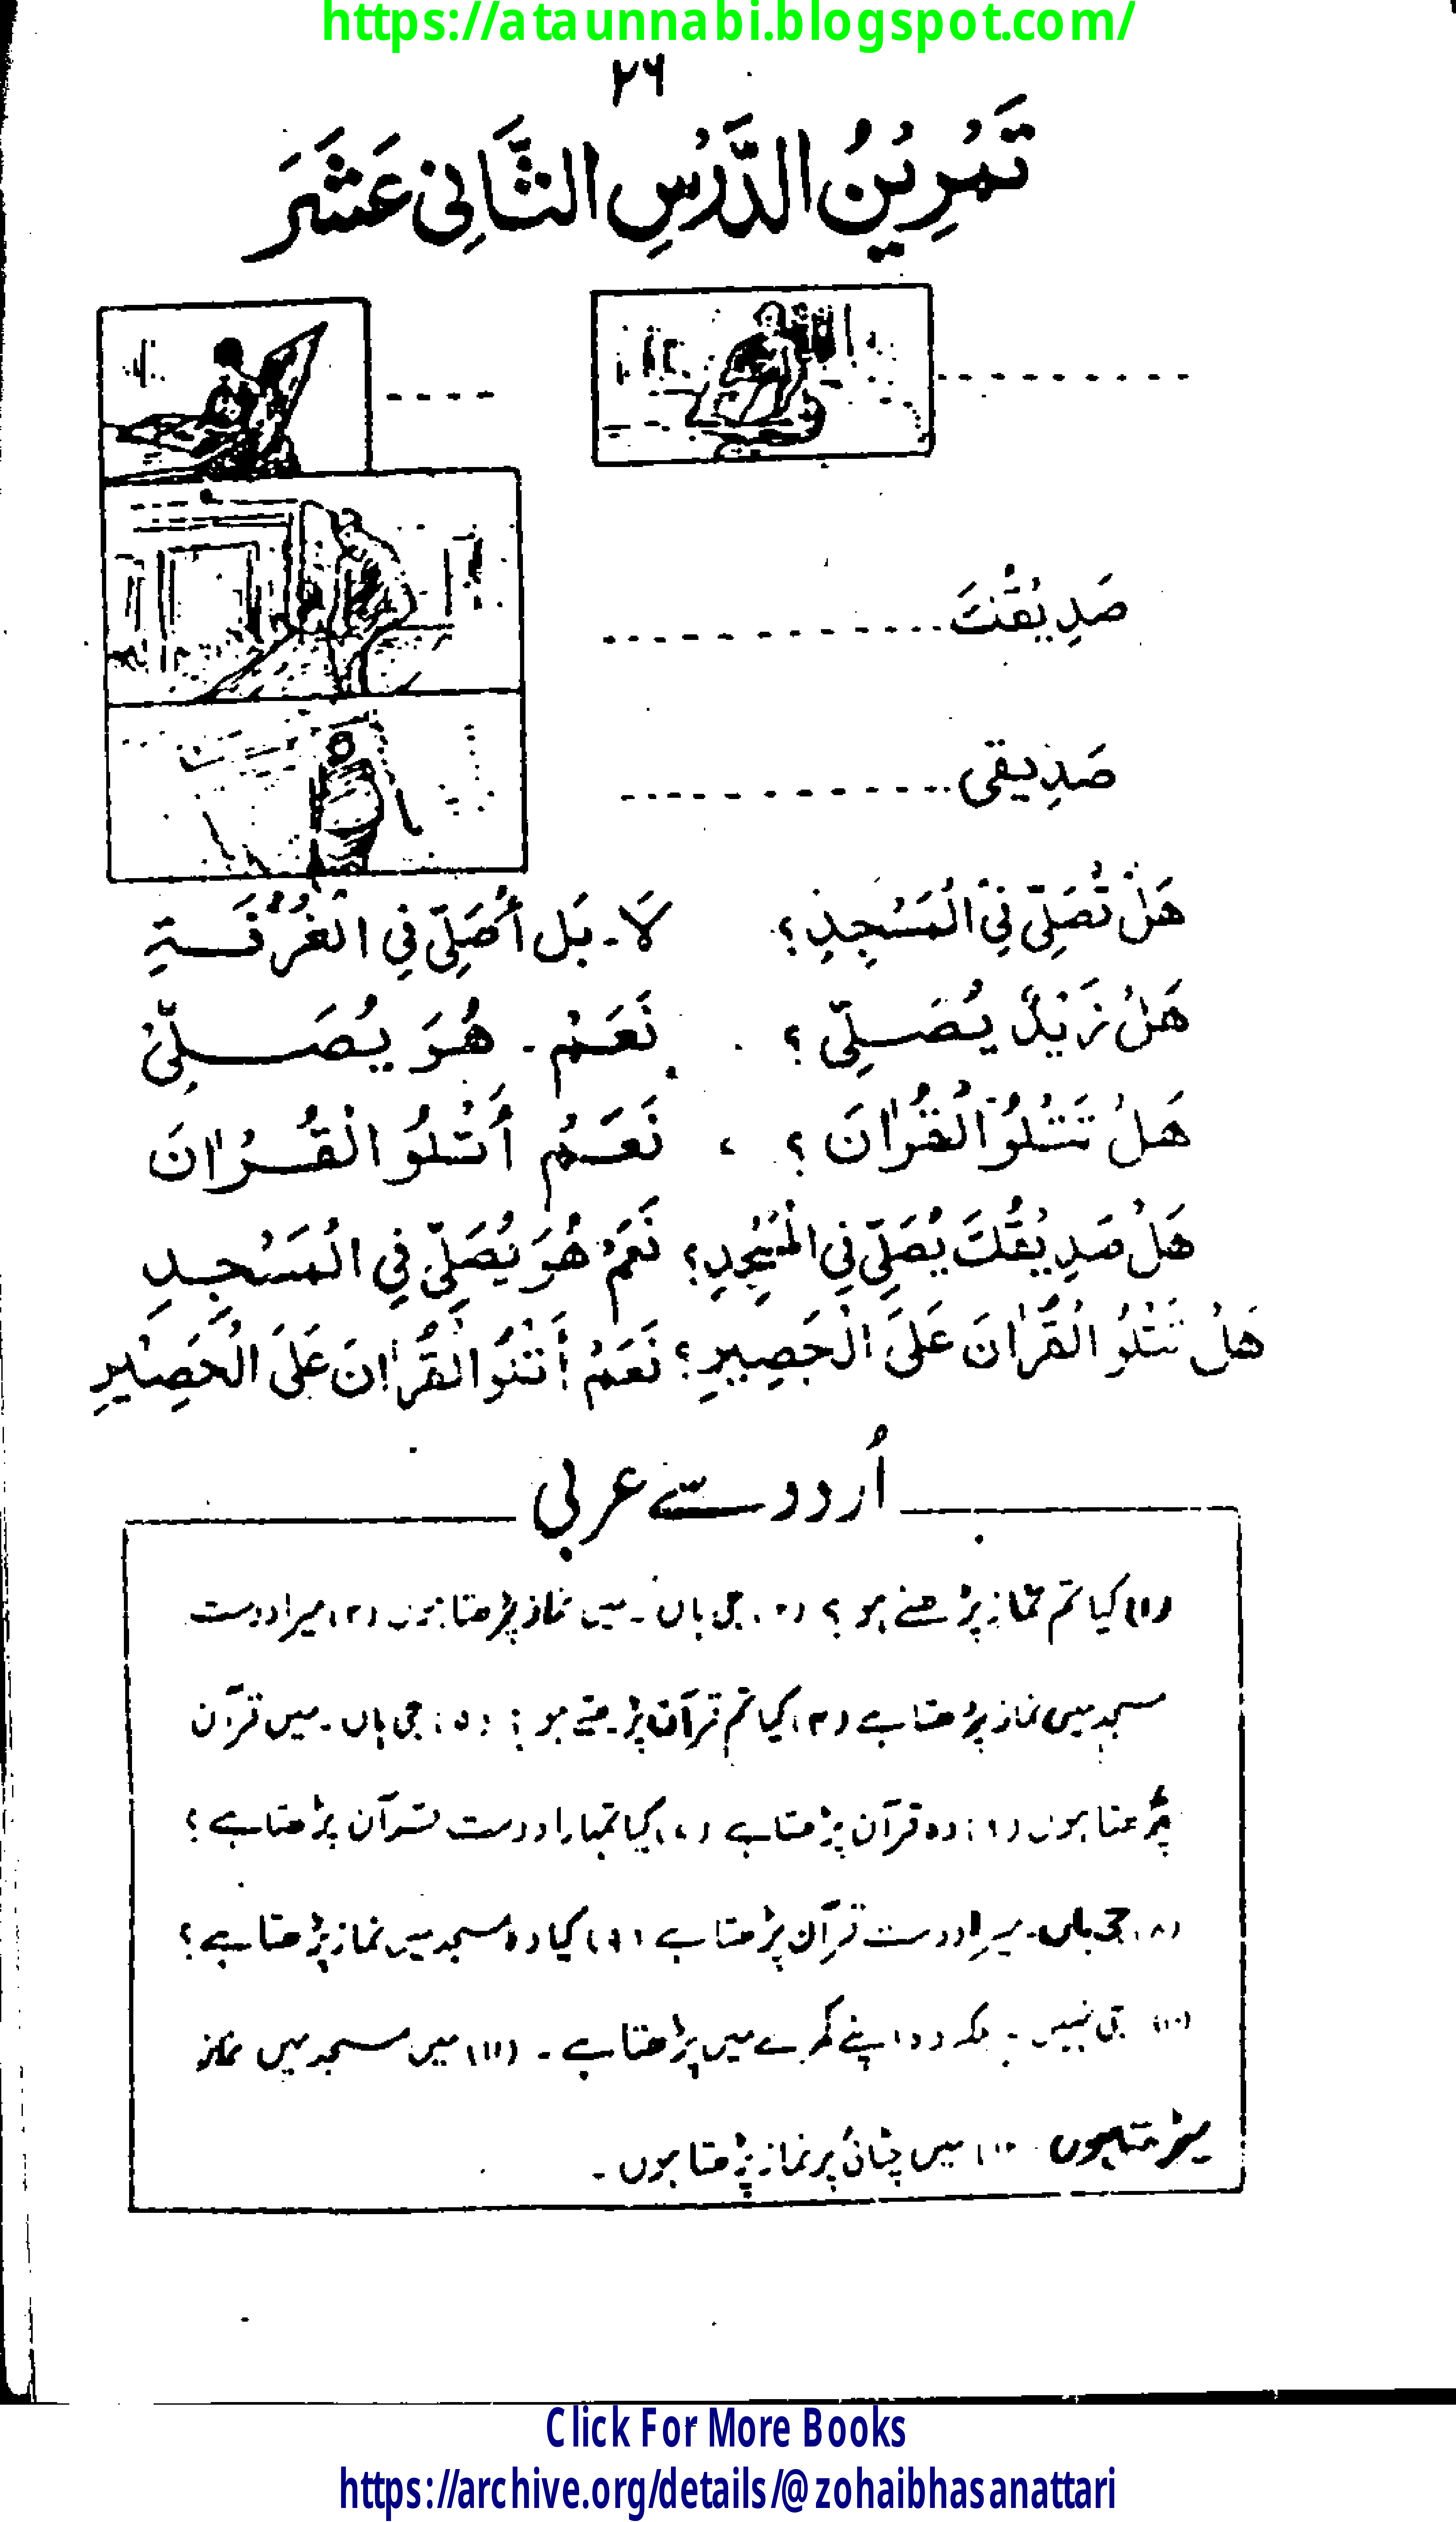 https://ataunnabi.blogspot.com/
۲۶
تَمْرِيْنُ الدَّرْسِ الثَّانِي عَشَرَ
صَدِيْقُكَ
صَدِيقِى
هَلْ تُصَلِّىْ فِى الْمَسْجِدِ؟ لَا۔ بَل أُصَلِّىْ فِى الْغُرْفَةِ
هَلْ زَيْدٌ يُصَلِّىْ؟ نَعَمْ۔ هُوَ يُصَلِّىْ
هَلْ تَتْلُو الْقُرْاٰنَ؟ نَعَمْ أَتْلُو الْقُرْاٰنَ
هَلْ صَدِيْقُكَ يُصَلِّىْ فِى الْمَسْجِدِ؟ نَعَمْ هُوَ يُصَلِّىْ فِى الْمَسْجِدِ
هَلْ تَتْلُو الْقُرْاٰنَ عَلَى الْحَصِيْرِ؟ نَعَمْ أَتْلُو الْقُرْاٰنَ عَلَى الْحَصِيْرِ
اُردو سے عربی
(۱) کیا تم نماز پڑھتے ہو؟ (۲) جی ہاں۔ میں نماز پڑھتا ہوں (۳) میرا دوست
مسجد میں نماز پڑھتا ہے (۴) کیا تم قرآن پڑھتے ہو؟ (۵) جی ہاں۔ میں قرآن
پڑھتا ہوں (۶) وہ قرآن پڑھتا ہے (۷) کیا تمہارا دوست قرآن پڑھتا ہے؟
(۸) جی ہاں۔ میرا دوست قرآن پڑھتا ہے (۹) کیا وہ مسجد میں نماز پڑھتا ہے؟
(۱۰) جی نہیں۔ بلکہ وہ اپنے کمرے میں پڑھتا ہے۔ (۱۱) میں مسجد میں نماز
پڑھتا ہوں (۱۲) میں چٹائی پر نماز پڑھتا ہوں۔
Click For More Books
https://archive.org/details/@zohaibhasanattari